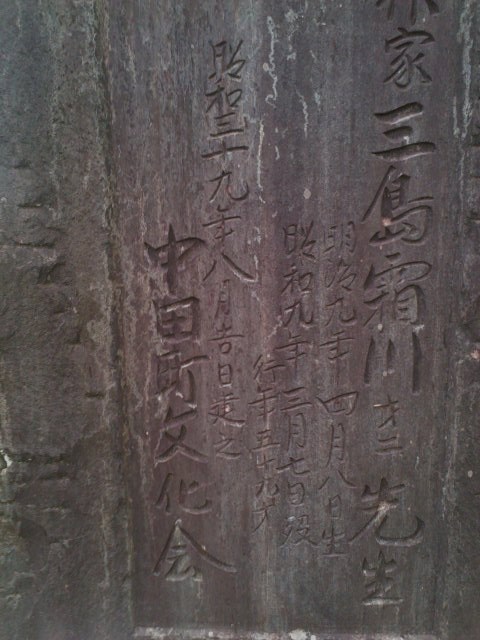 作家三島霜川才二先生
明治九年四月八日生
昭和九年三月七日没
行年五十九才
昭和三十九年八月吉日建之
中田町文化会